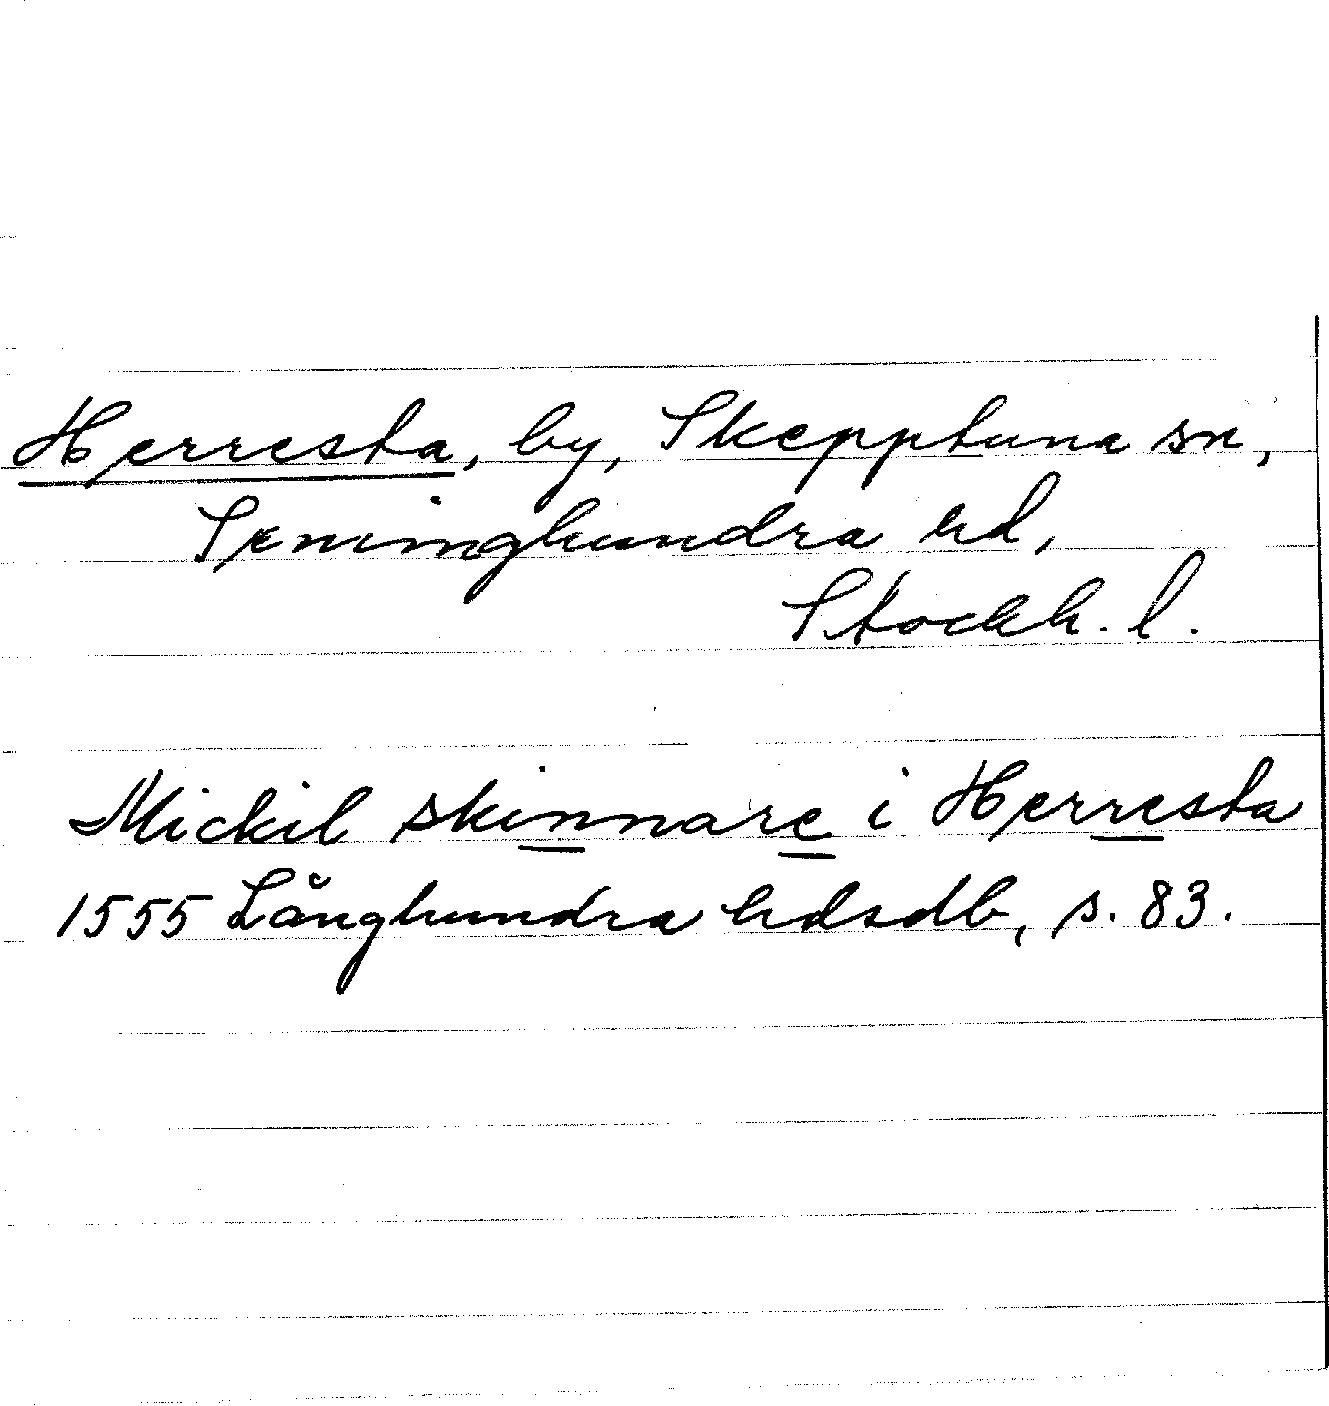 Herresta, by, Skepptuna sn,
Seminghundra hd,
Stockh. l.
Mickil skinnare i Herresta
1555 Långhundra hdsdb, s. 83.